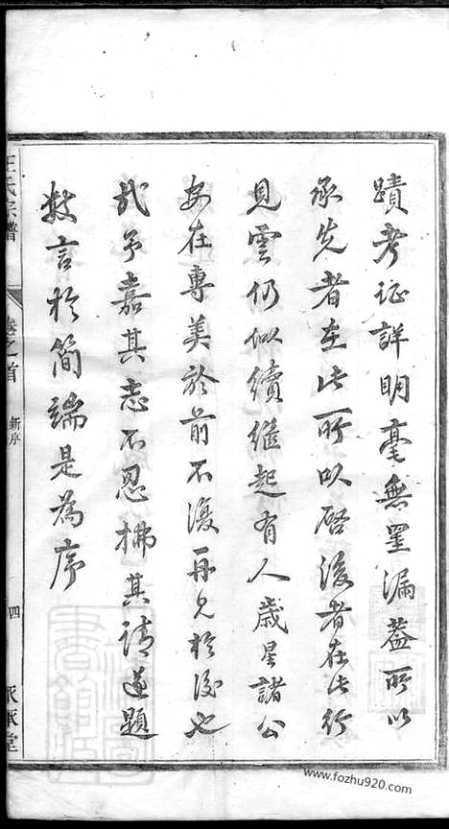 蹟考证詳明毫無罣漏蓋所以
承先者在此所以啓後者在此行
見雲仍似續继起有人歲星諸公
安在專美於前不復再见於後也
哉予嘉其志不忍拂其请遂題
数言於简端是為序
王氏宗譜
卷之首
新序
四
www.fozhu920.com